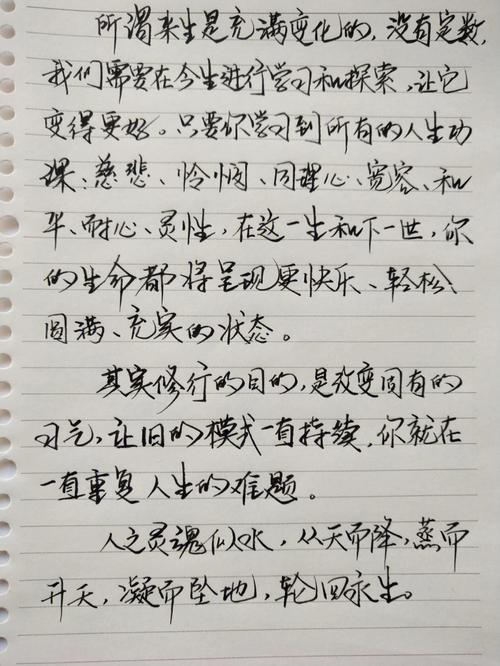 所谓来生是充满变化的,没有定数,
我们需要在今生进行学习和探索,让它
变得更好。只要你学习到所有的人生功
课、慈悲、怜悯、同理心、宽容、和
平、耐心、灵性,在这一生和下一世,你
的生命都将呈现更快乐、轻松、
圆满、充实的状态。
其实修行的目的,是改变固有的
习气,让旧的模式一直持续,你就在
一直重复人生的难题。
人之灵魂似水,从天而降,蒸而
升天,凝而坠地,轮回永生。